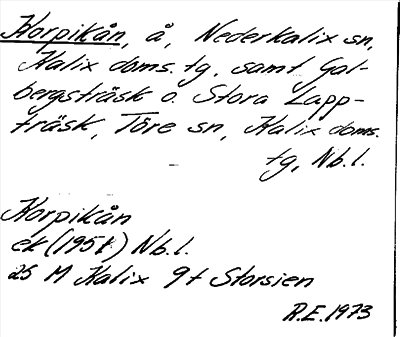 Korpikån, å, Nederkalix sn,
Kalix doms. tg, samt Gal-
bergsträsk o. Stora Lapp-
träsk, Töre sn, Kalix doms.
tg, Nb.l.
Korpikån
ek (1951) Nb.l.
25 M Kalix 9t Storsien
R.E. 1973